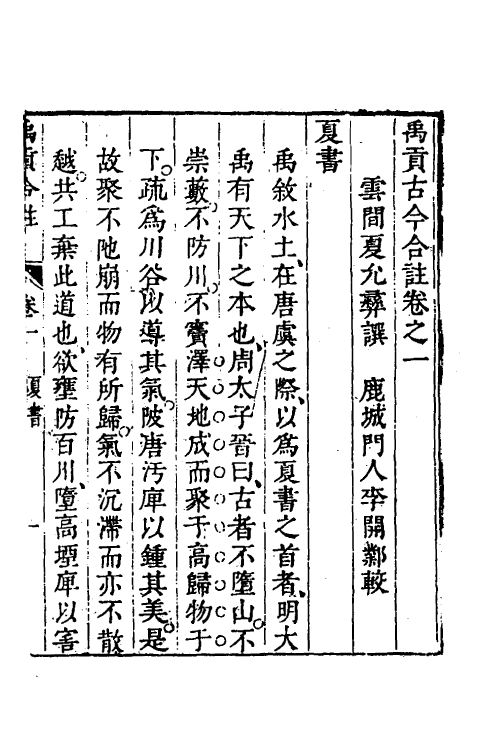 禹貢古今合註卷之一
雲間夏允彝譔　鹿城門人李開鄴較
夏書
禹敘水土、在唐虞之際、以爲夏書之首者、明大
禹有天下之本也、周太子晉曰、古者不墮山。不
崇藪。不防川。不竇澤天地成而聚于高歸物于
下。疏爲川谷以導其氣。陂唐汚庳以鍾其美。是
故聚不阤崩而物有所歸。氣不沉滯而亦不散
越。共工棄此道也、欲壅防百川、墮高堙庳以害
禹貢合註　卷一　夏書　一